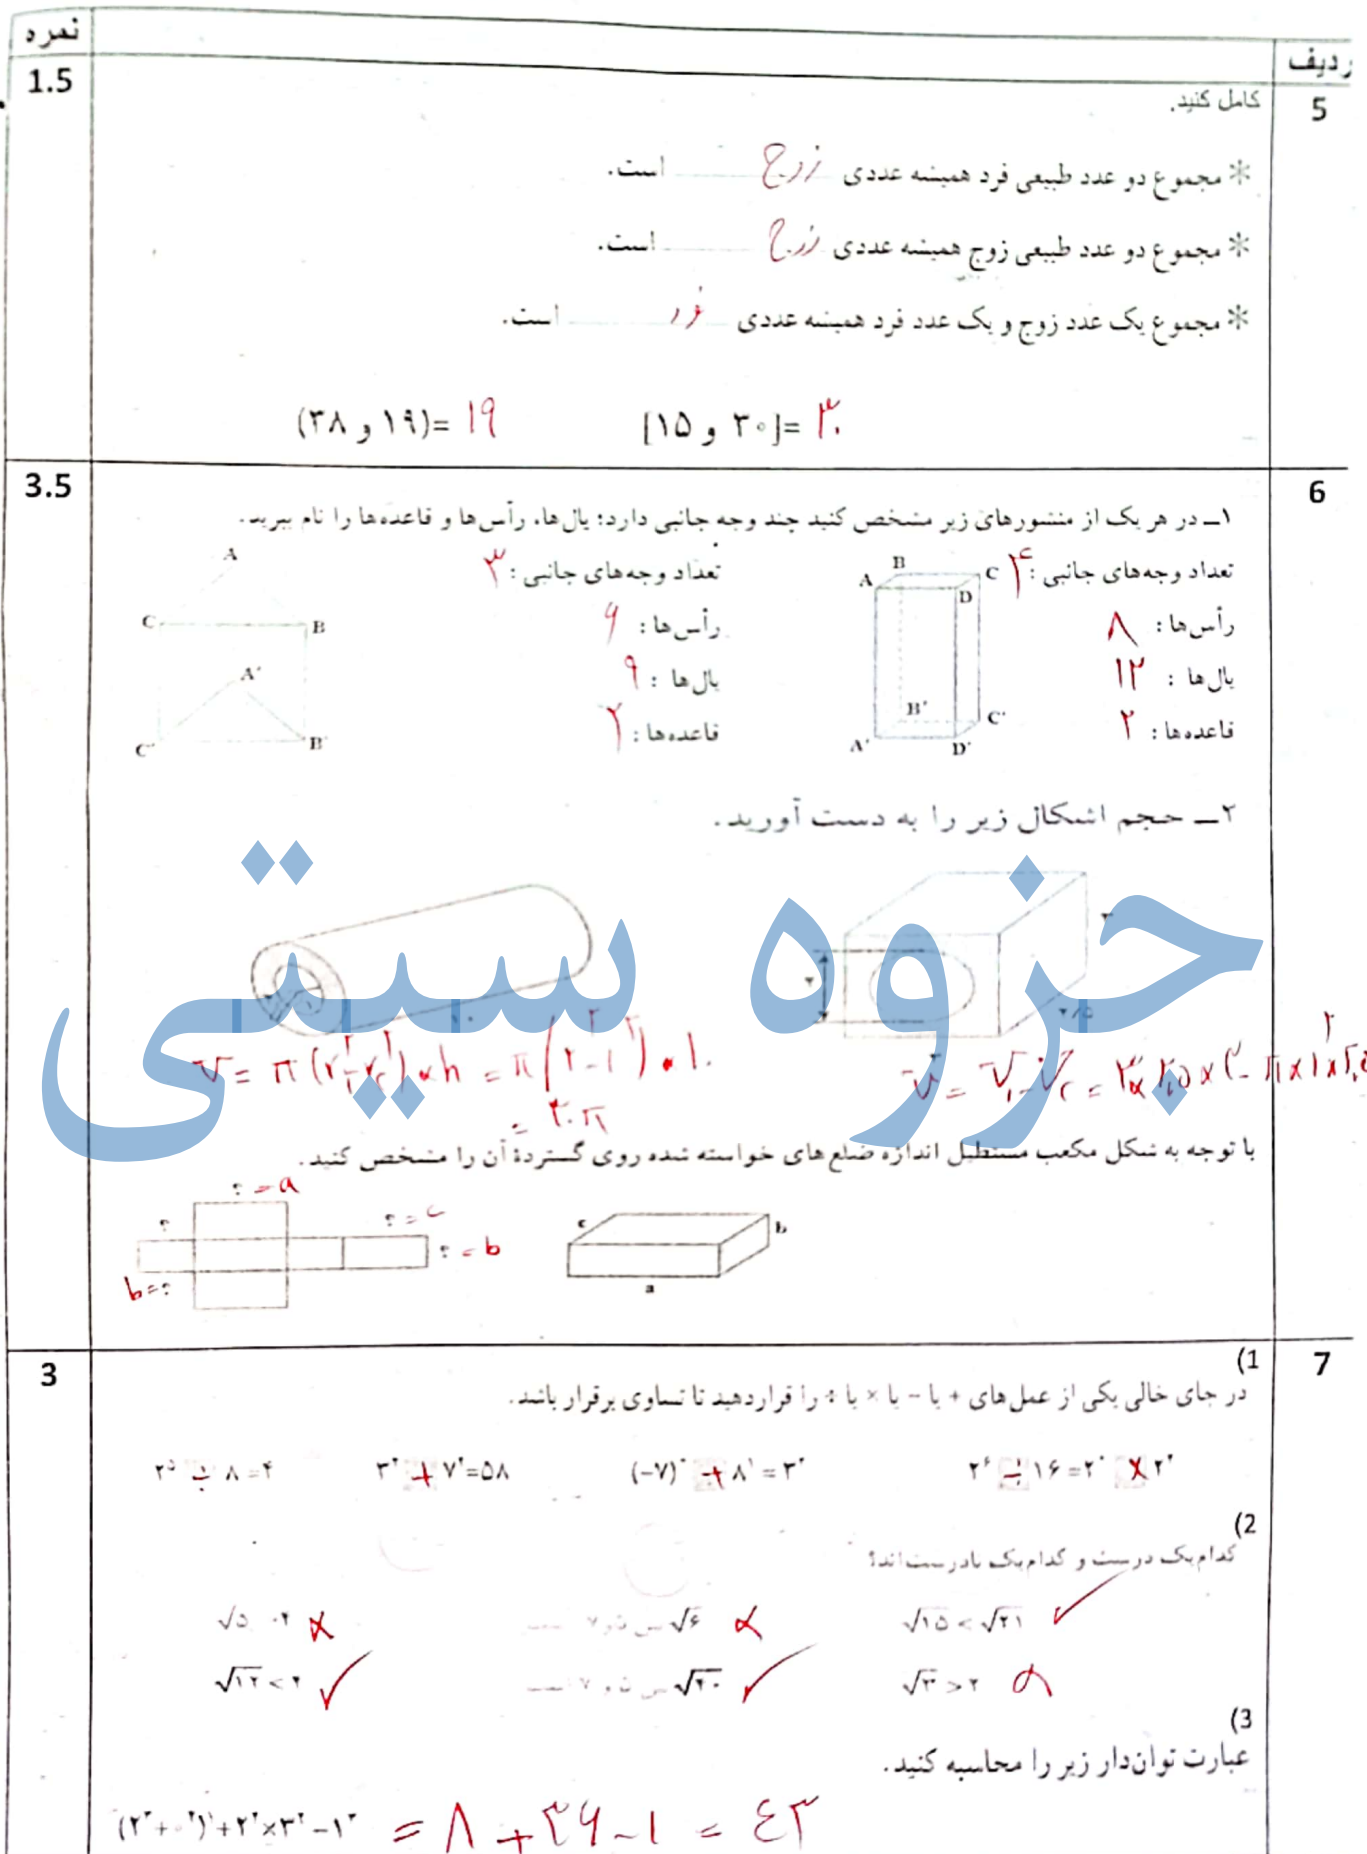 ردیف نمره
5 1.5
کامل کنید.
* مجموع دو عدد طبیعی فرد همیشه عددی زوج است.
* مجموع دو عدد طبیعی زوج همیشه عددی زوج است.
* مجموع یک عدد زوج و یک عدد فرد همیشه عددی فرد است.
[۱۵ و ۳۰]= ۳۰ (۳۸ و ۱۹)= ۱۹
6 3.5
۱ــ در هر یک از منشورهای زیر مشخص کنید چند وجه جانبی دارد؛ یال‌ها، رأس‌ها و قاعده‌ها را نام ببرید.
تعداد وجه‌های جانبی : ۴
رأس‌ها : ۸
یال‌ها : ۱۲
قاعده‌ها : ۲
A B C D
A′ B′ C′ D′
تعداد وجه‌های جانبی : ۳
رأس‌ها : ۶
یال‌ها : ۹
قاعده‌ها : ۲
A
C B
A′
C′ B′
۲ــ حجم اشکال زیر را به دست آورید.
جزوه سیتی
V = π(r₁² - r₂²) × h = π(۲² - ۱²) × ۱۰
= ۳۰π
با توجه به شکل مکعب مستطیل اندازه ضلع‌های خواسته شده روی گستردهٔ آن را مشخص کنید.
c b a
؟ = a
؟ ؟ = c
؟ = b
b = ؟
7 3
(1
در جای خالی یکی از عمل‌های + یا − یا × یا ÷ را قرار دهید تا تساوی برقرار باشد.
۲⁵ ÷ ۸ = ۴ ۳² + ۷² = ۵۸ (−۷)⁰ + ۸¹ = ۳² ۲⁶ ÷ ۱۶ = ۲⁰ × ۲²
(2
کدام‌یک درست و کدام‌یک نادرست‌اند؟
√۱۵ < √۲۱ ✓ √۶ ×
√۳ > ۲ × ✓ √۱۲ < ۴ ✓
(3
عبارت توان‌دار زیر را محاسبه کنید.
(۲³+۰²)¹+۲²×۳²−۱³ = ۸ + ۳۶ - ۱ = ۴۳